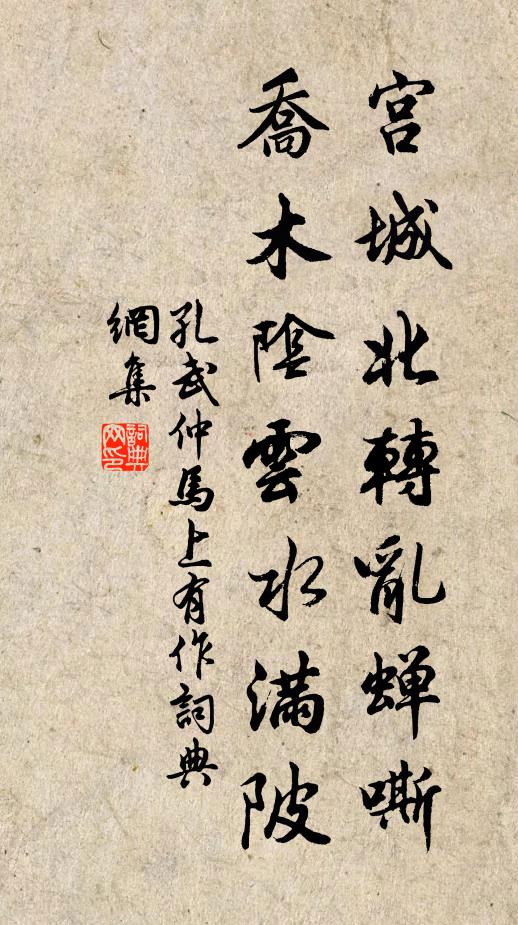 宫城北轉亂蝉嘶
喬木陰雲水滿陂
孔武仲馬上有作詞典
網集
詞典
网印